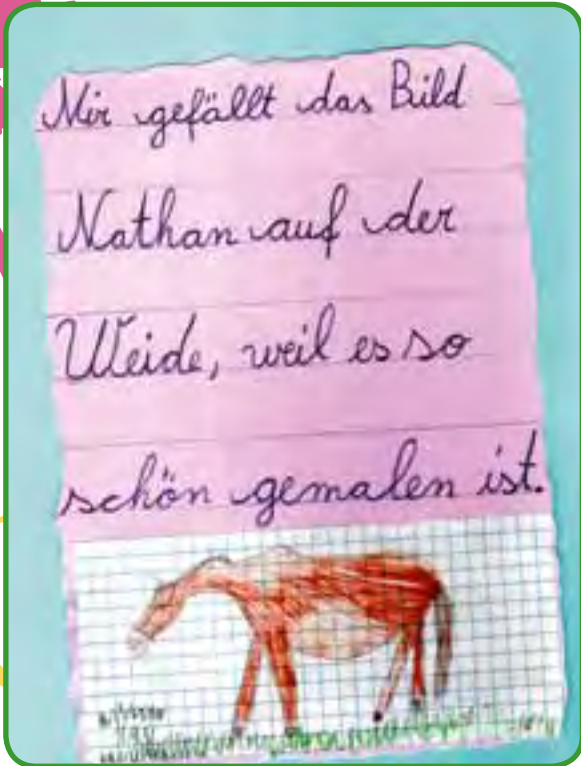 Mir gefällt das Bild
Nathan auf der
Weide, weil es so
schön gemalen ist.